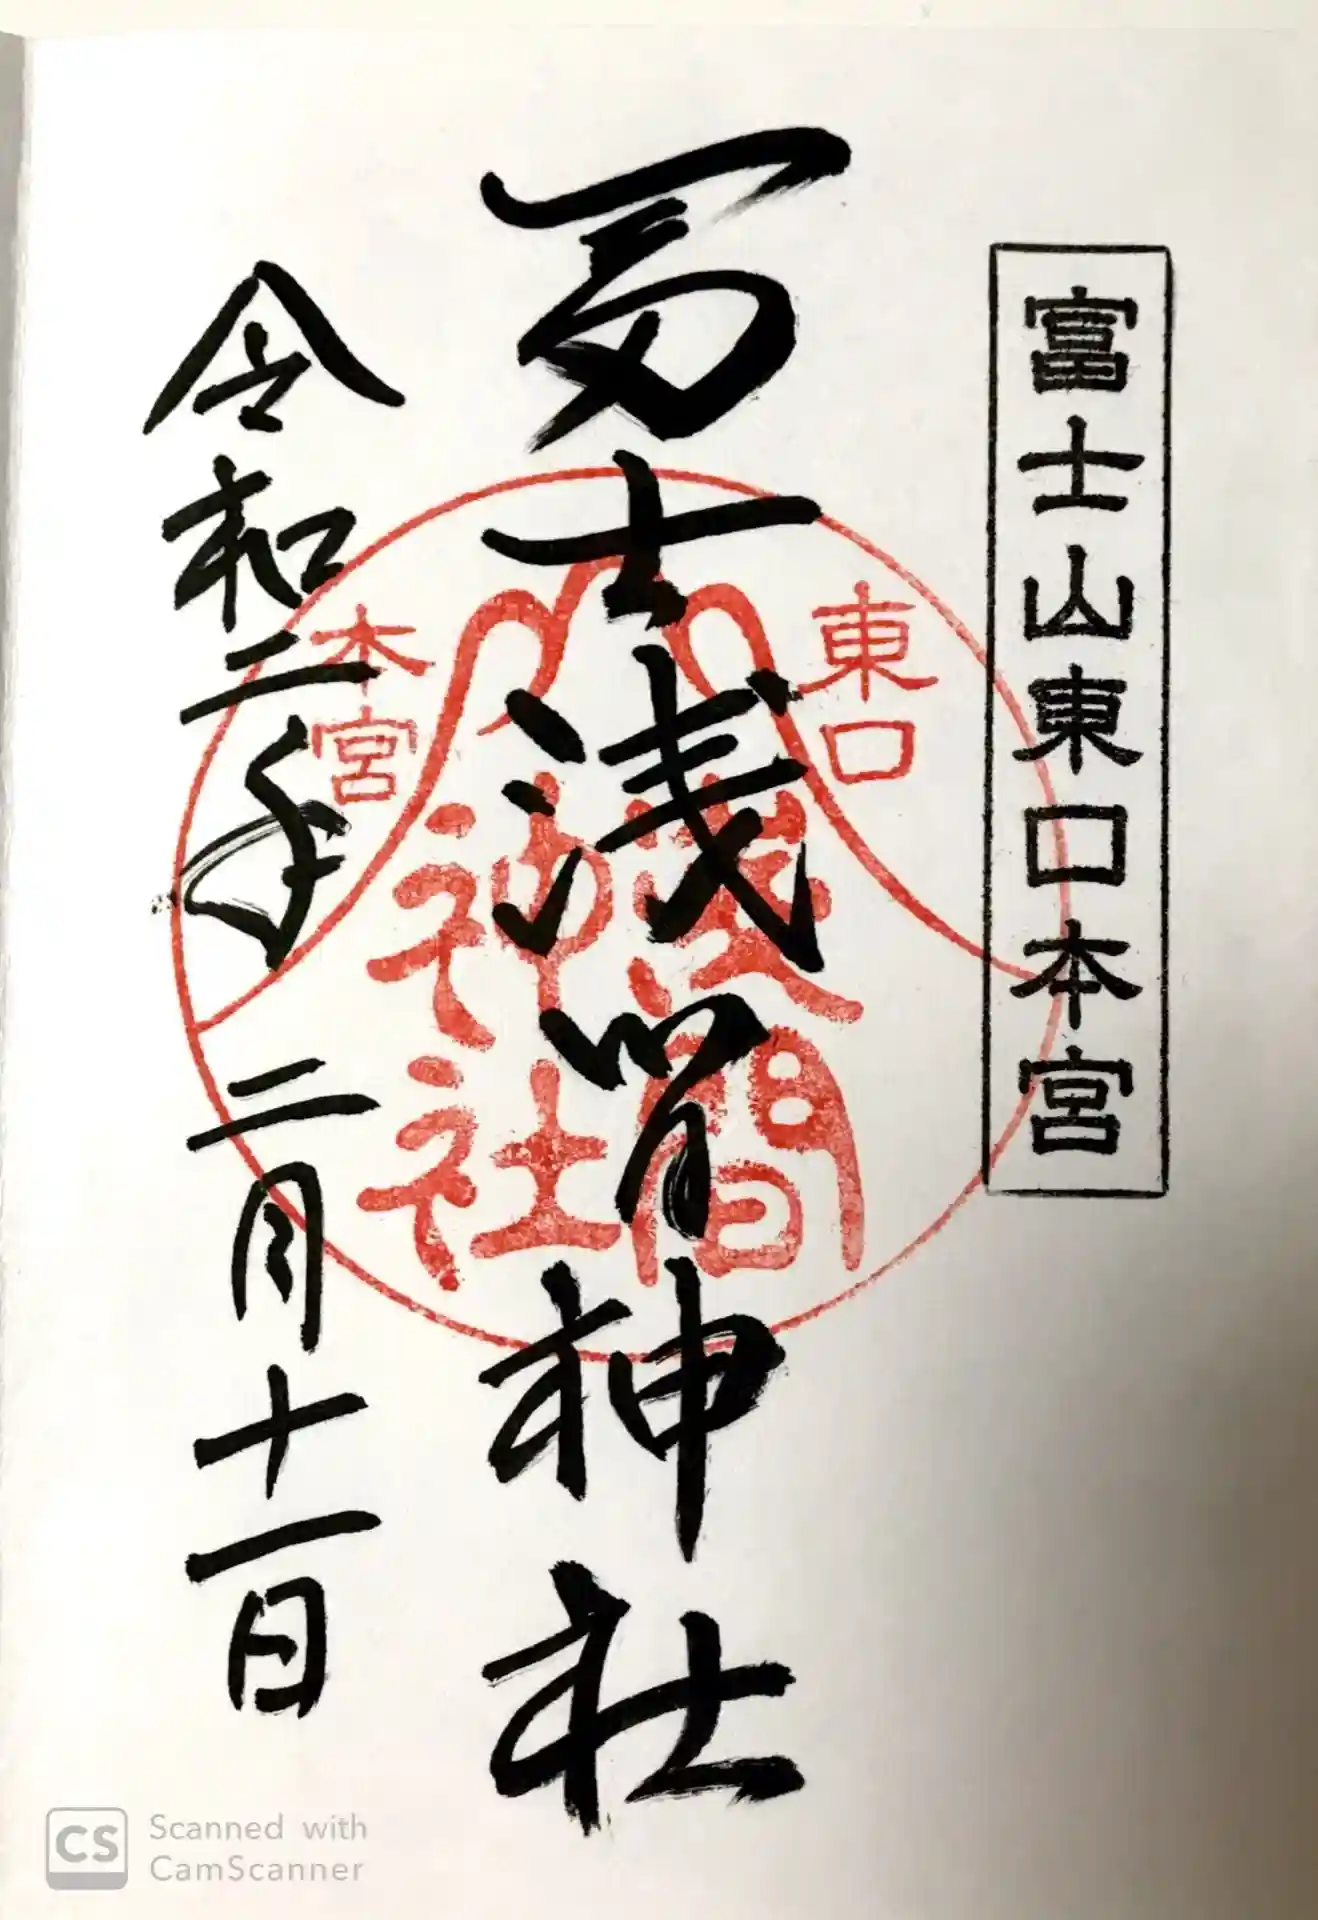 富士山東口本宮
冨士浅间神社
東口
本宮
浅間
神社
令和二年二月十一日
Scanned with
CS CamScanner